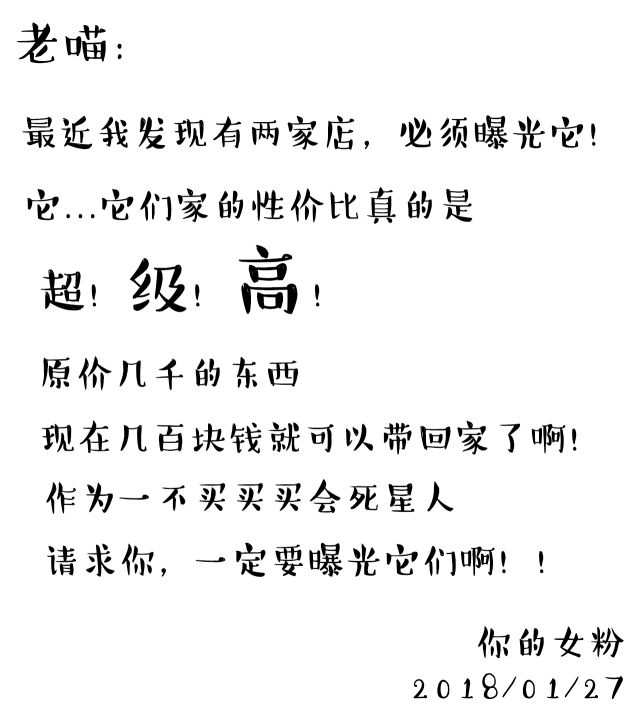 老喵:
最近我发现有两家店，必须曝光它!
它...它们家的性价比真的是
超! 级! 高!
原价几千的东西
现在几百块钱就可以带回家了啊!
作为一不买买买会死星人
请求你，一定要曝光它们啊! !
你的女粉
2018/01/27